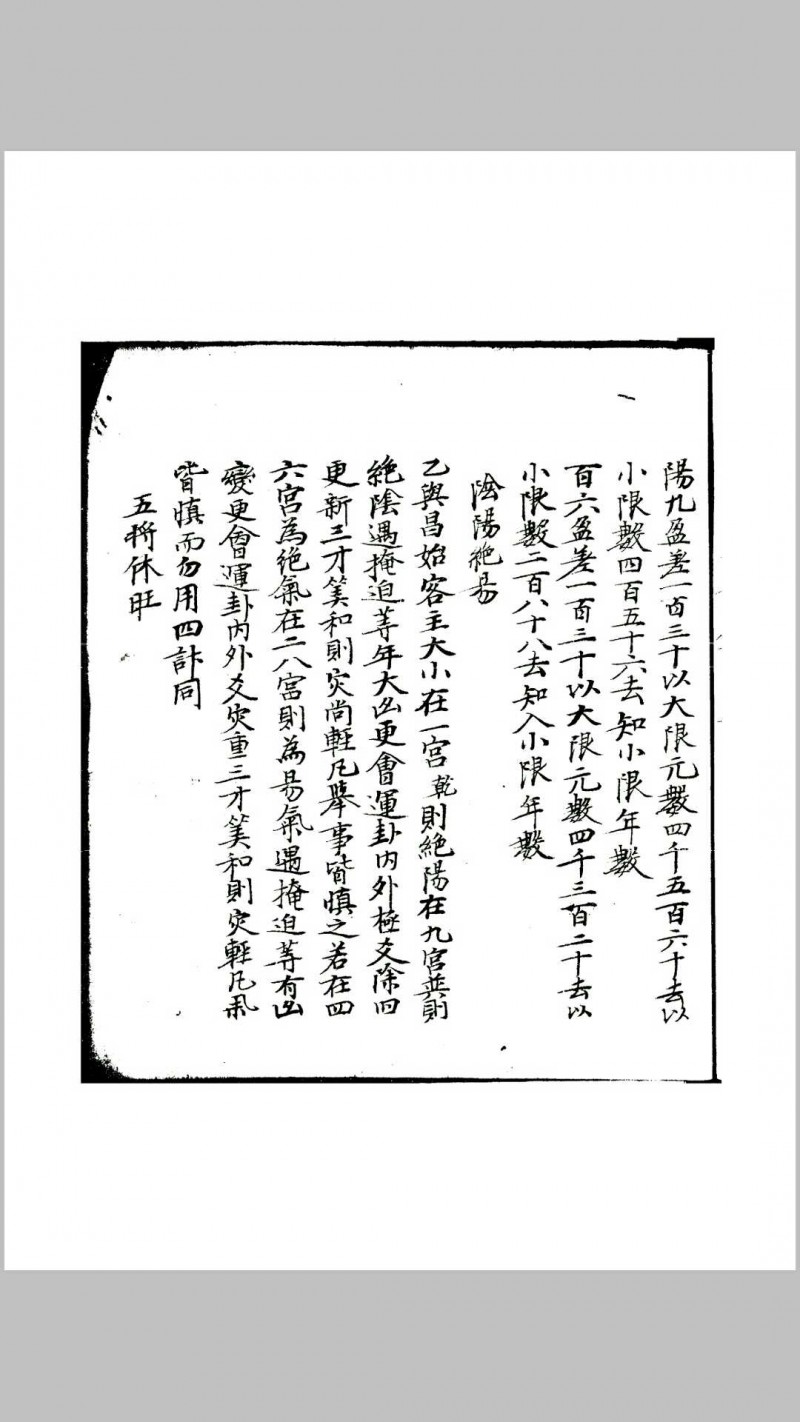 陽九盈差一百三十以大限元數四千五百六十去以
小限數四百五十六去知小限年數
百六盈差一百三十以大限元數四千三百二十去以
小限數二百八十八去知入小限年數
陰陽絕易
乙與昌始客主大小在一宮乾則絕陽在九宮巽則
絕陰遇掩迫等年大凶更會運卦内外極爻除旧
更新三才筭和則灾尚輕凡舉事皆慎之若在四
六宮為絕氣在二八宮則為易氣遇掩迫等有凶
變更會運卦内外爻灾重三才筭和則灾輕凡氣
皆慎而勿用四計同
五將休旺